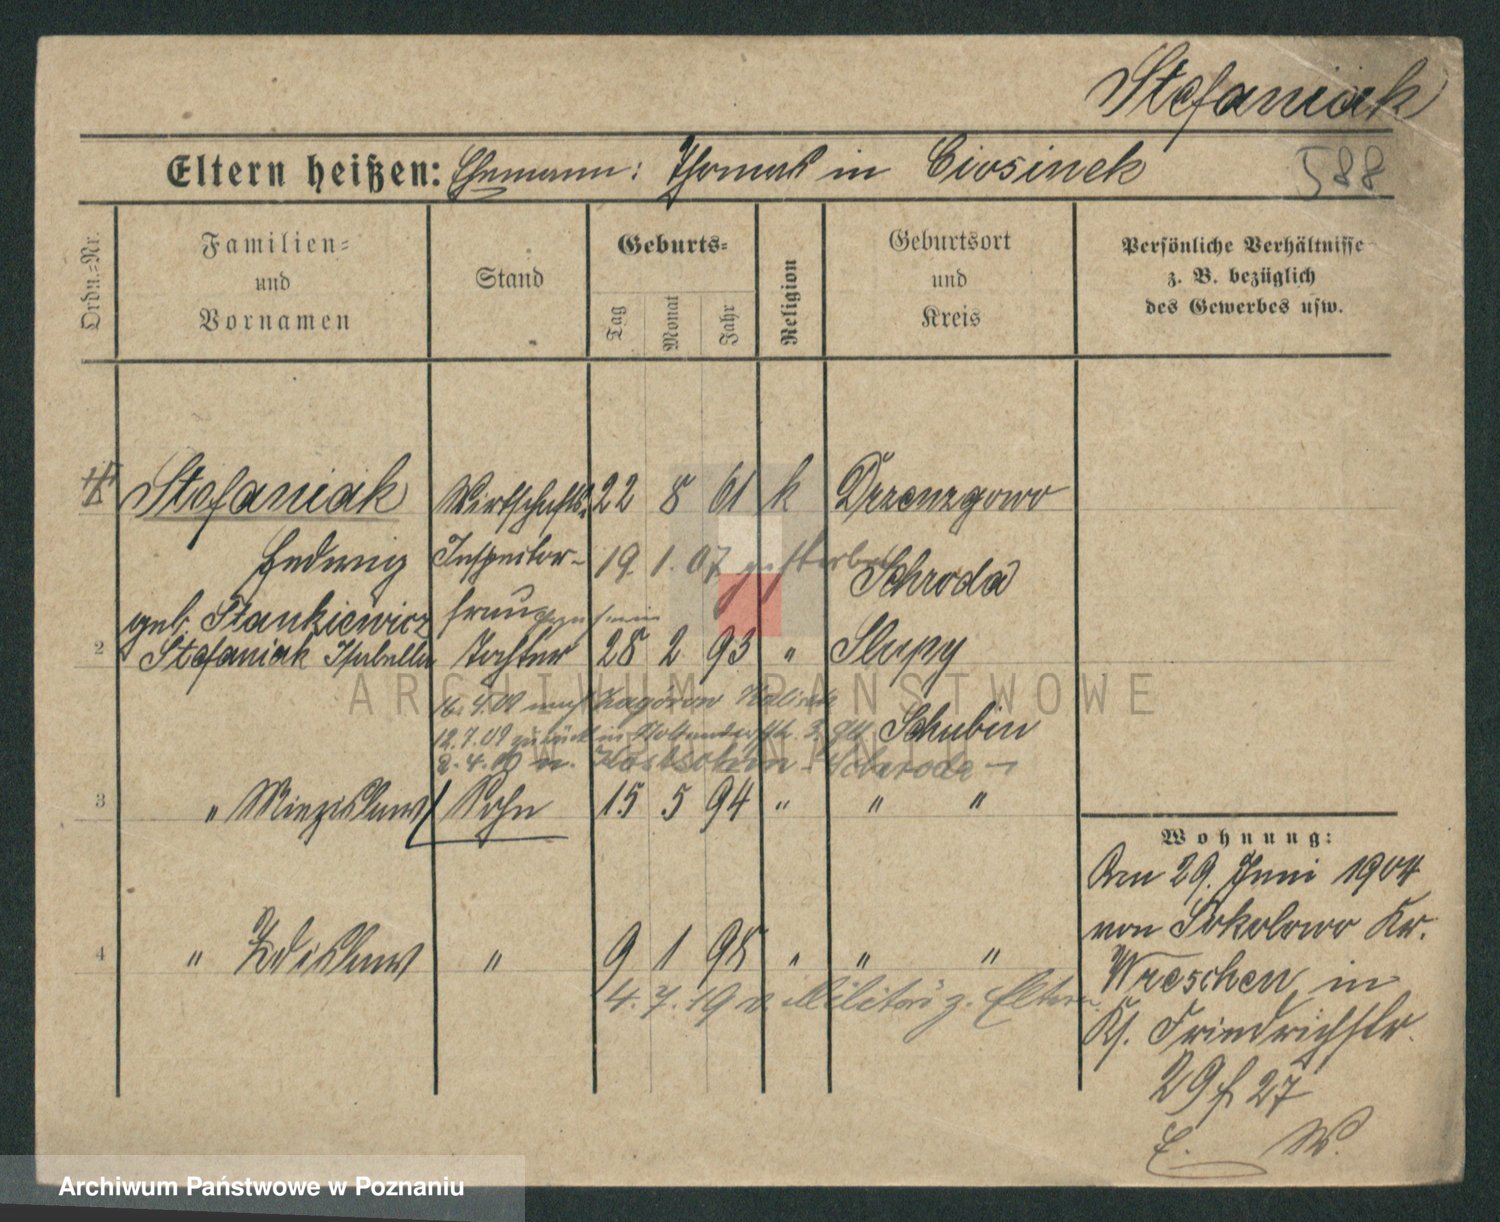 Stefaniak
Eltern heißen: Ehemann: Thomas in Ciosinek
588
Ordn.=Nr.
Familien=
und
Vornamen
Stand
Geburts=
Tag
Monat
Jahr
Religion
Geburtsort
und
Kreis
Persönliche Verhältnisse
z. B. bezüglich
des Gewerbes usw.
Stefaniak Wirtschafts 22 8 61 k
Hedwig Inspektor- 19. 1. 07 gestorben Schroda
geb. Stankiewicz frau
2 Stefaniak Isabella Tochter 28 2 93 " Slupy
nach Zagorow
12.7.09 zurück in 3 Schubin
Schroda
3 " Miezislaw Sohn 15 5 94 " " "
4 " Zdislaw " 9 1 98 " " "
4. 7. 19 v. Militär z. Eltern
Wohnung:
Am 29. Juni 1904
von Sokolowo Kr.
Wreschen, in
Friedrichstr.
29 27
E. W.
ARCHIWUM PAŃSTWOWE
W POZNANIU
Archiwum Państwowe w Poznaniu